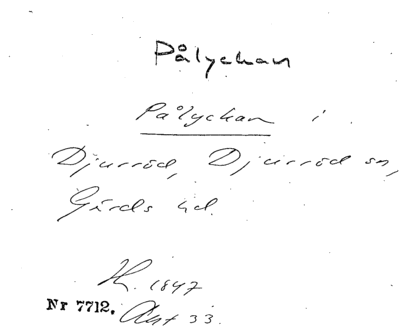 Pålyckan
Pålyckan i
Djurröd, Djurröd sn,
Gärds hd.
H. 1847
Nr 7712. Akt 33.